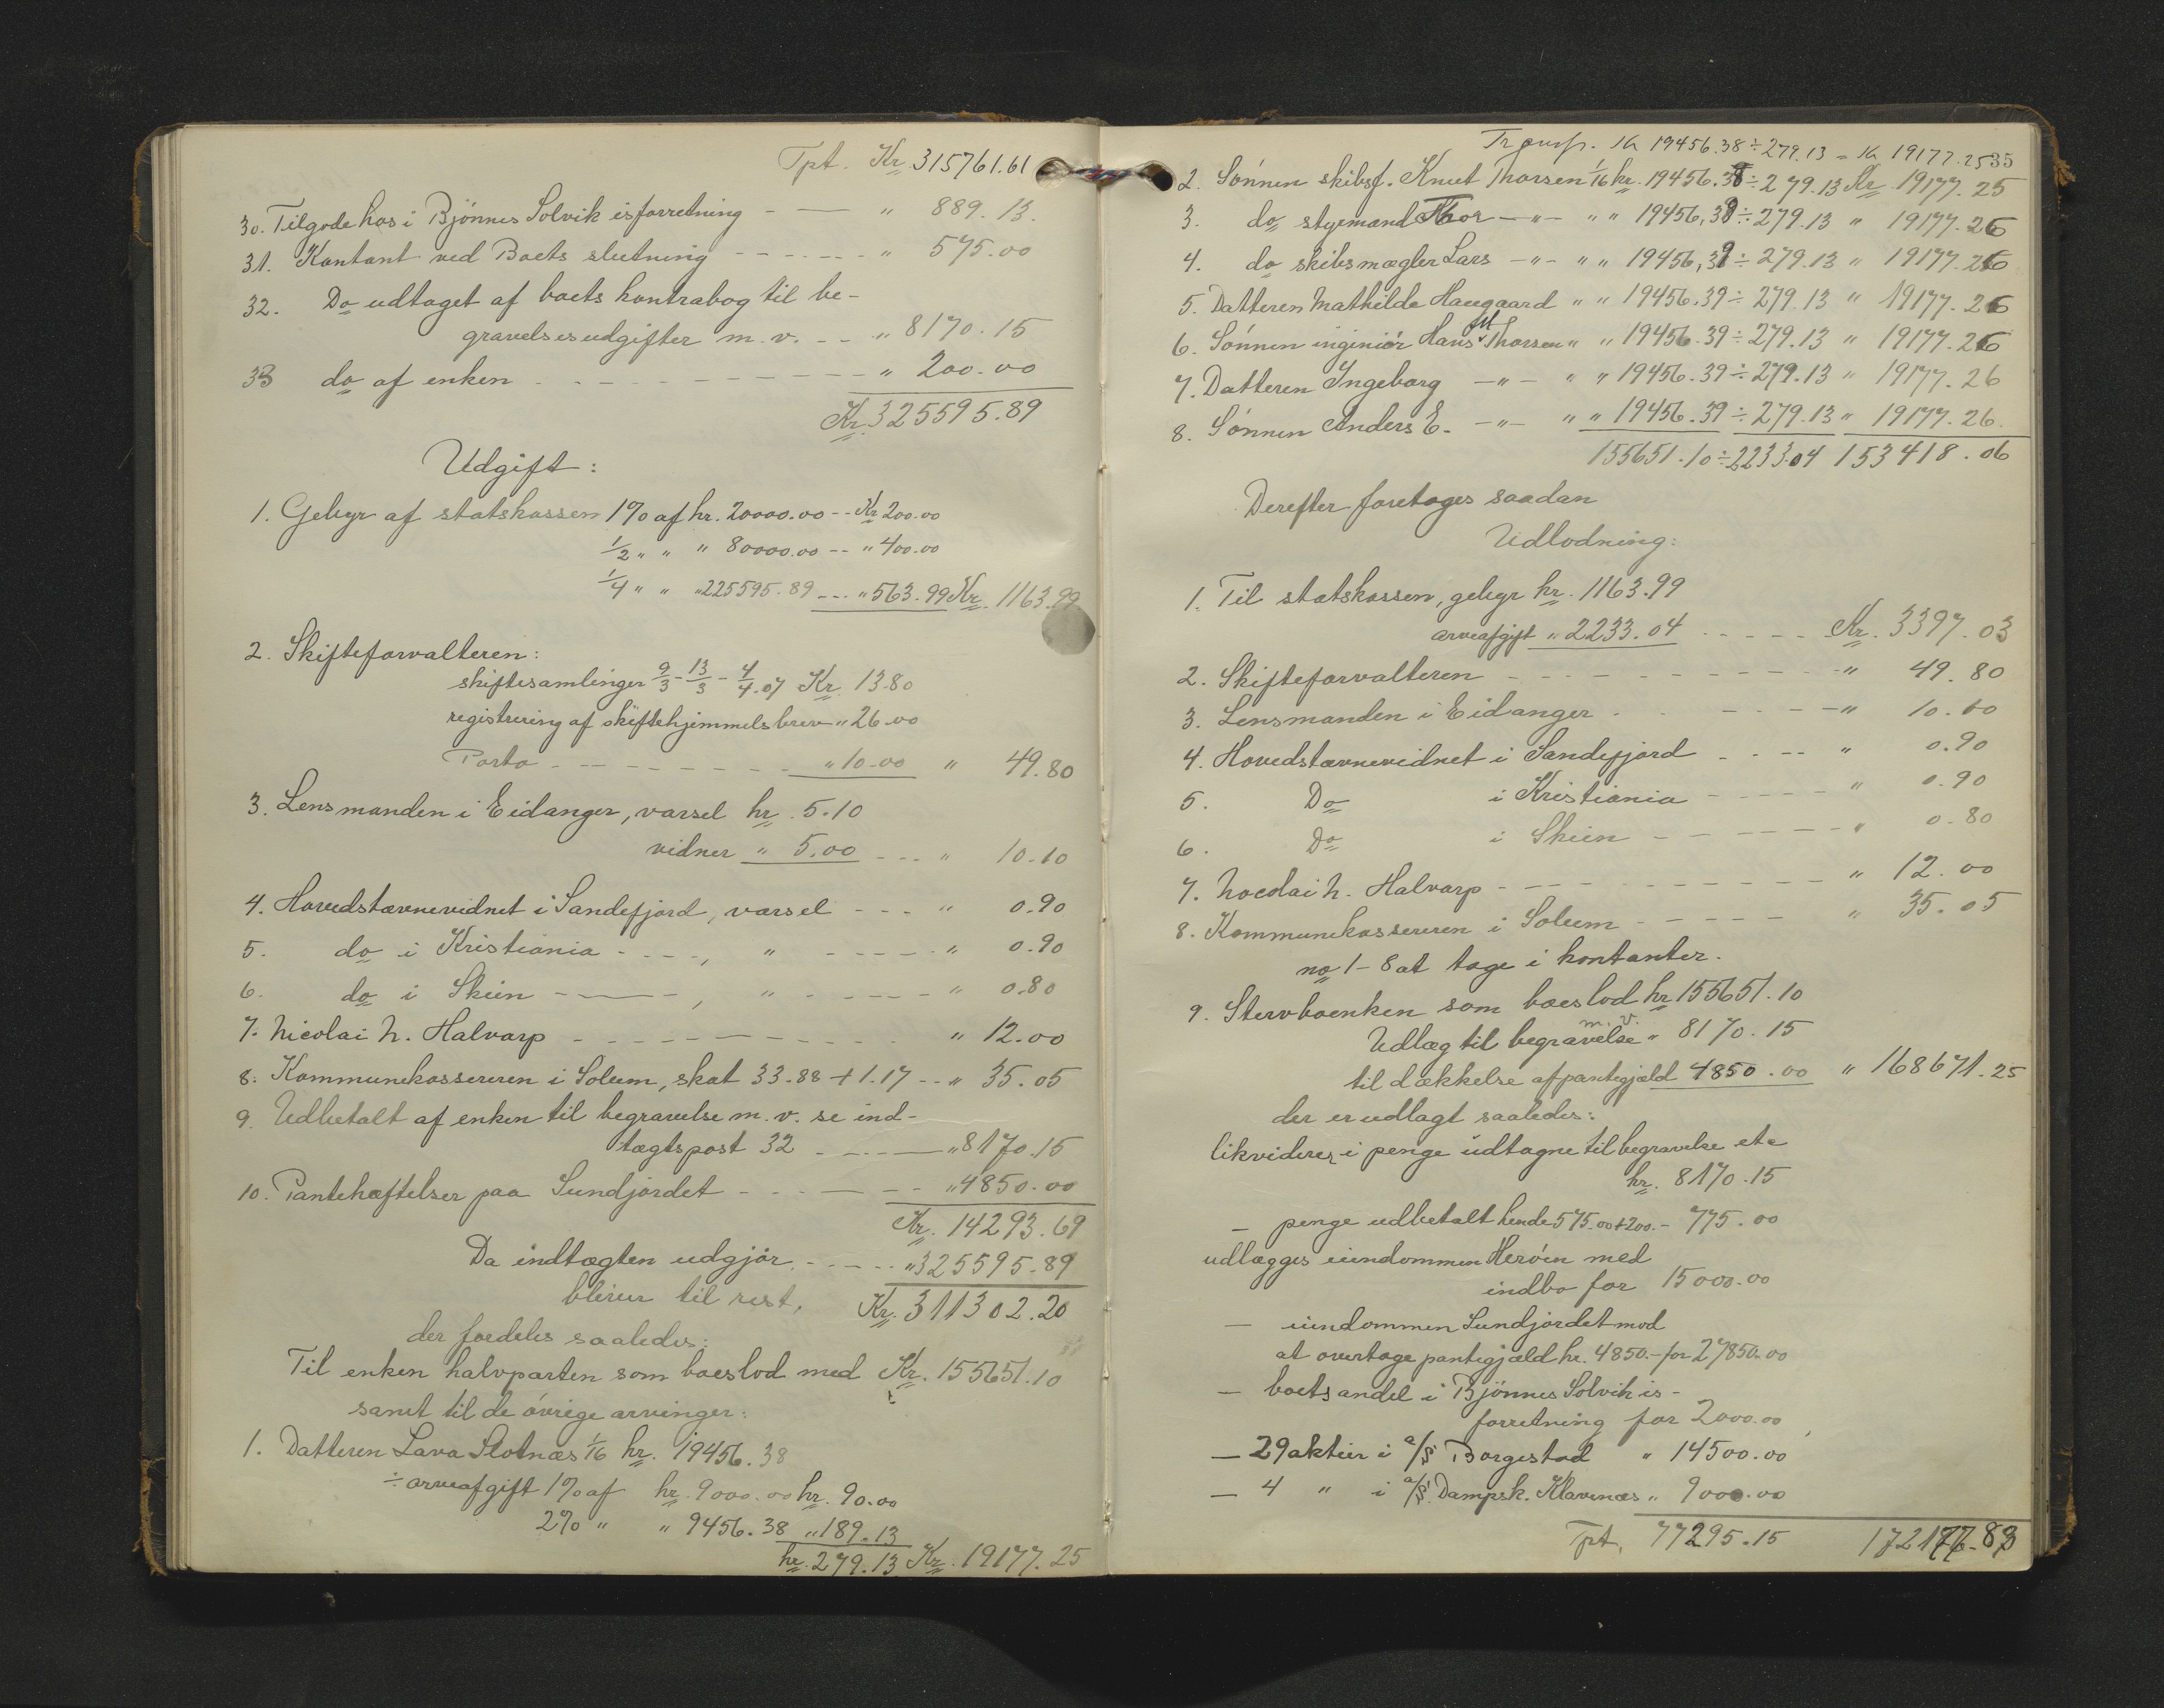 Tpt. Kr 315761.61
30. Tilgode hos i Bjönnes Solvik isforretning - — " 889.13.
31. Kontant ved Boets slutning - - - - - - " 575.00
32. Do udtaget af boets kontrabog til be-
gravelsesudgifter m.v. - - " 8170.15
33 do af enken - - - - - - - - - " 200.00
Kr. 325595.89
Udgift:
1. Gebyr af statskassen 1% af kr. 20000.00 -- Kr 200.00
1/2 " " " 80000.00 -- " 400.00
1/4 " " " 225595.89 --- " 563.99 Kr. 1163.99
2. Skifteforvalteren:
skiftesamlinger 9/3 - 13/3 - 4/4.07 Kr. 13.80
registrering af skiftehjemmelsbrev " 26.00
Porto - - - - - - - - " 10.00 " 49.80
3. Lensmanden i Eidanger, varsel kr. 5.10
vidner " 5.00 --- " 10.10
4. Hovedstævnevidnet i Sandefjord, varsel - - - " 0.90
5. do i Kristiania - - - -, " - - - - - " 0.90
6. do i Skien - — -, " - - - - - " 0.80
7. Nicolai N. Halvarp - - - - - - - - - - " 12.00
8. Kommunekassereren i Solum, skat 33.88 + 1.17 -- " 35.05
9. Udbetalt af enken til begravelse m.v. se ind-
tægtspost 32 - - - - — " 8170.15
10. Pantehæftelser paa Sundjordet - - - — - - " 4850.00
Kr. 14293.69
Da indtægten udgjör - - - - - " 325595.89
bliver til rest, Kr. 311302.20
der fordeles saaledes:
Til enken halvparten som boeslod med Kr. 155651.10
samt til de övrige arvinger:
1. Datteren Lava Slotnæs 1/16 kr. 19456.38
÷ arveafgift 1% af kr. 9000.00 kr. 90.00
2% " " 9456.38 " 189.13
kr. 279.13 Kr. 19177.25
35
Transp. Kr 19456.38 ÷ 279.13 = Kr 19177.25
2. Sönnen skibsf. Knut Thorsen 1/16 kr. 19456.38 ÷ 279.13 Kr. 19177.25
3. do styrmand Thor - " - " " 19456.39 ÷ 279.13 " 19177.26
4. do skibsmægler Lars - " - " " 19456.39 ÷ 279.13 " 19177.26
5. Datteren Mathilde Haugaard " " 19456.39 ÷ 279.13 " 19177.26
6. Sönnen ingeniör Hans M Thorsen " " 19456.39 ÷ 279.13 " 19177.26
7. Datteren Ingeborg - " - " " 19456.39 ÷ 279.13 " 19177.26
8. Sönnen Anders E. - " - " " 19456.39 ÷ 279.13 " 19177.26.
155651.10 ÷ 2233.04 153418.06
Derefter foretages saadan
Udlodning:
1. Til statskassen, gebyr kr. 1163.99
arveafgift " 2233.04 - - - - - Kr. 3397.03
2. Skifteforvalteren - - - - - - - - - - " 49.80
3. Lensmanden i Eidanger - - - - - - " 10.10
4. Hovedstævnevidnet i Sandefjord - - - - " 0.90
5. Do i Kristiania - - - - - " 0.90
6. Do i Skien - - - - - - " 0.80
7. Nocolai N. Halvarp - - - - - - - - - " 12.00
8. Kommunekassereren i Solum - - - - - " 35.05
no 1-8 at tage i kontanter.
9. Stervboenken som boeslod kr 155651.10
Udlæg til begravelse m.v. " 8170.15
til dækkelse af pantegjæld 4850.00 " 168671.25
der er udlagt saaledes:
likviderer i penge udtagne til begravelse etc
kr. 8170.15
- penge udbetalt hende 575.00 + 200.- 775.00
udlægges eiendommen Heröen med
indbo for 15000.00
- eiendommen Sundjordet mod
at overtage pantegjæld kr. 4850.- for 27850.00
- boets andel i Bjönnes Solvik is-
forretning for 2000.00
- 29 aktier i a/S Borgestad " 14500.00
- 4 " i a/S. Dampsk. Klavenæs " 9000.00
Tpt. 77295.15 172177.83